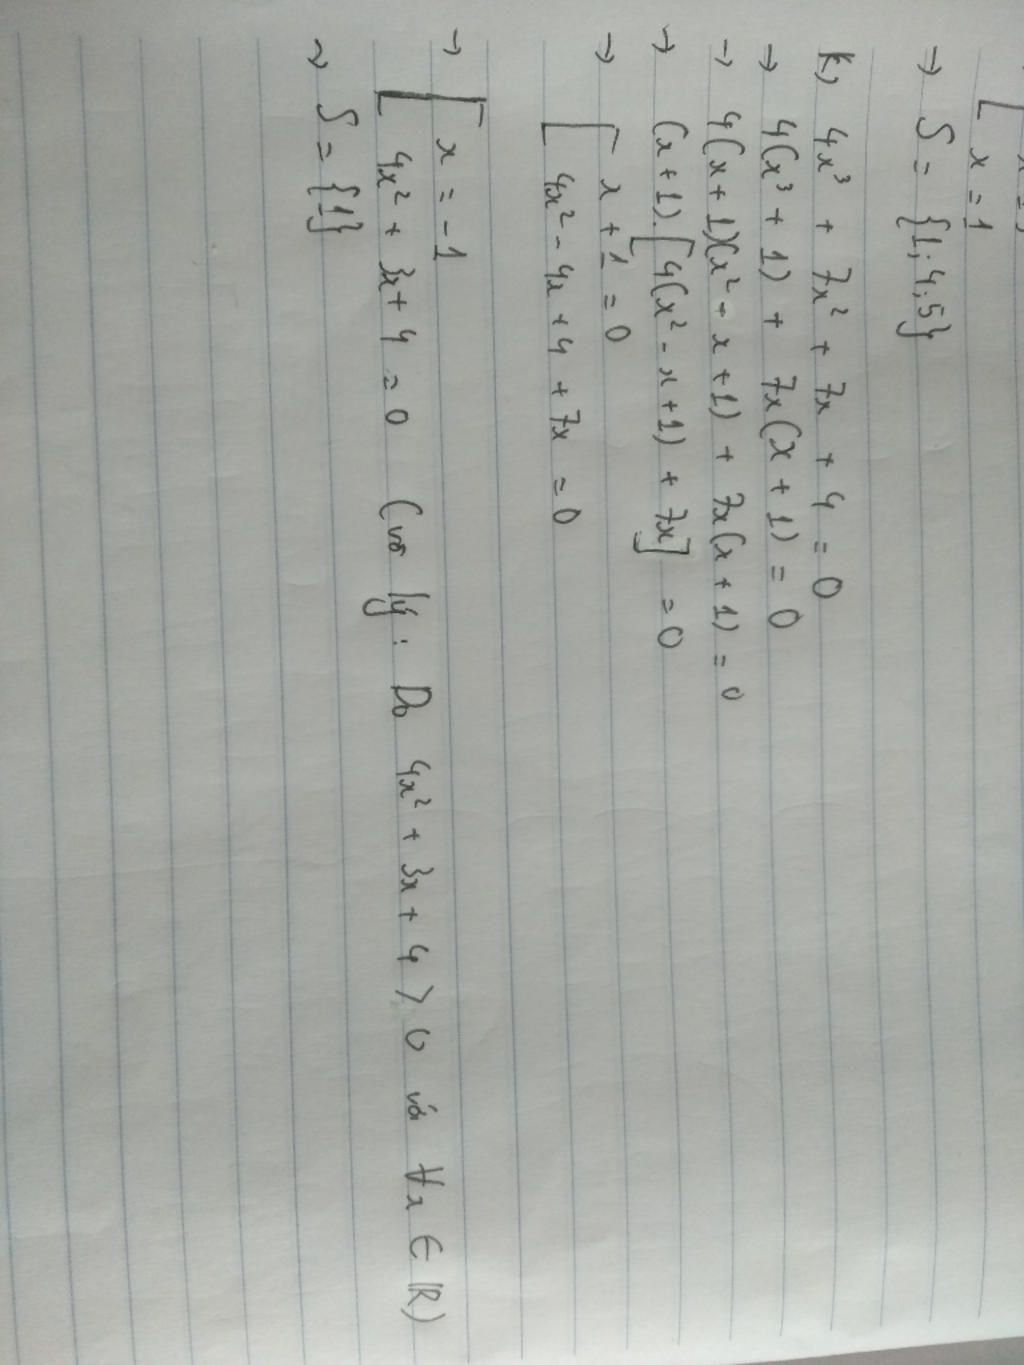 [ x = 1
→ S = {1; 4; 5}
k) 4x³ + 7x² + 7x + 4 = 0
→ 4(x³ + 1) + 7x(x + 1) = 0
→ 4(x + 1)(x² - x + 1) + 7x(x + 1) = 0
→ (x + 1).[4(x² - x + 1) + 7x] = 0
→ [ x + 1 = 0
[ 4x² - 4x + 4 + 7x = 0
→ [ x = -1
[ 4x² + 3x + 4 = 0 (vô lý: Do 4x² + 3x + 4 > 0 với ∀x ∈ R)
→ S = {1}